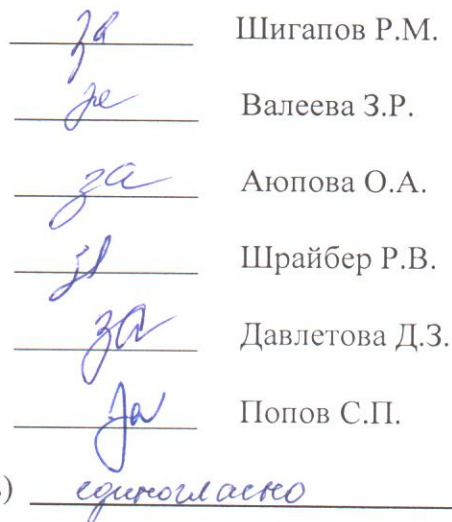 за Шигапов Р.М.
за Валеева З.Р.
за Аюпова О.А.
за Шрайбер Р.В.
за Давлетова Д.З.
за Попов С.П.
) единогласно